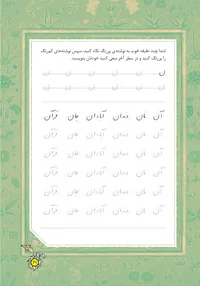 ابتدا چند دقیقه خوب به نوشته‌ی پررنگ نگاه کنید، سپس نوشته‌های کم‌رنگ
را پررنگ کنید و در سطر آخر سعی کنید خودتان بنویسید.
ن ن ن ن ن ن
ن ن ن ن ن ن
آن مان دندان آبادان جان قرآن
آن مان دندان آبادان جان قرآن
آن مان دندان آبادان جان قرآن
آن مان دندان آبادان جان قرآن
آن مان دندان آبادان جان قرآن
آن مان دندان آبادان جان قرآن